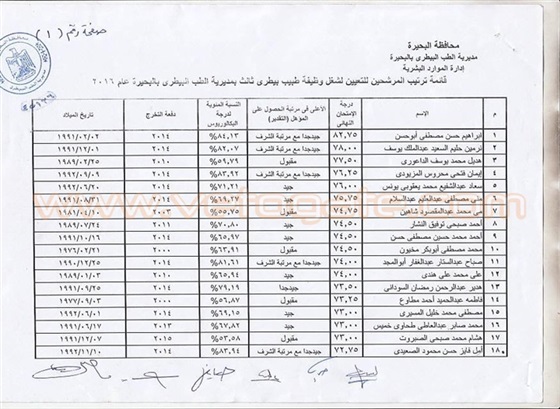 صفحة رقم (١)
محافظة البحيرة
مديرية الطب البيطرى بالبحيرة
إدارة الموارد البشرية
قائمة ترتيب المرشحين للتعيين لشغل وظيفة طبيب بيطرى ثالث بمديرية الطب البيطرى بالبحيرة عام ٢٠١٦
م الإسم درجة الإمتحان النهائى الاعلى فى مرتبة الحصول على المؤهل (التقدير) النسبة المئوية لدرجة البكالوريوس دفعة التخرج تاريخ الميلاد
١ ابراهيم حسن مصطفى أبوحسن ٨٢,٧٥ جيدجدا مع مرتبة الشرف ٨٤,١٣% ٢٠١٤ ١٩٩١/٠٢/٠٢
٢ نرمين حليم السعيد عبدالملك يوسف ٧٨,٠٠ جيدجدا مع مرتبة الشرف ٨٢,٠٧% ٢٠١٤
٣ هديل محمد يوسف الداعورى ٧٧,٠٠ مقبول ٥٩,٧٩% ٢٠١١ ١٩٨٩/٠٢/٢٥
٤ إيمان فتحى محروس المزيودى ٧٦,٠٠ جيدجدا مع مرتبة الشرف ٨٣,٩٢% ٢٠١٤ ١٩٩٢/٠٩/٠٩
٥ سعاد عبدالشفيع محمد يعقوبى يونس ٧٦,٠٠ جيد ٧١,٢١% ٢٠١٤ ١٩٩٢/٠٦/٢٠
٦ مصطفى عبدالعليم عبدالسلام ٧٥,٧٥ جيد ٢٠١٤ ١٩٩١/٠٨/٣١
٧ مى محمد عبدالمقصود شاهين ٧٤,٧٥ مقبول ٥٥,٧٥% ٢٠٠٣ ١٩٨١/٠٤/١٠
٨ أحمد صبحى توفيق النشار ٧٤,٥٠ جيد ٧٠,٨٠% ٢٠١٤
٩ أحمد محمد حسين مصطفى حسن ٧٤,٥٠ جيد ٢٠١٤ ١٩٩١/١٠/١٦
١٠ محمد مصطفى أبوبكر مخيون ٧٤,٥٠ مقبول ٦٣,٩١% ١٩٧٦/٠٢/١١
١١ صباح عبدالستار عبدالغفار أبوالمجد ٧٤,٠٠ جيدجدا مع مرتبة الشرف ٨١,٦١% ٢٠١٤
١٢ على محمد على هندى ٧٤,٠٠ جيد ٦٥,٩٤% ٢٠١٠ ١٩٨٩/٠١/٠٣
١٣ هدير عبدالرحمن رمضان السودانى ٧٣,٥٠ جيدجدا ٧٩,١٩% ٢٠١٤ ١٩٩١/٠٩/٢٥
١٤ فاطمه عبدالحميد أحمد مطاوع ٧٣,٢٥ مقبول ٥٦,٨٧% ٢٠٠٠ ١٩٧٧/٠٩/٠٣
١٥ مصطفى محمد خليل المسيرى ٧٣,٠٠ جيد ٦٩,١٥% ٢٠١٤
١٦ محمد صابر عبدالعاطى طحاوى خميس ٧٣,٠٠ جيد ٦٧,٨٢% ٢٠١٣ ١٩٩١/٠٦/١٧
١٧ هشام محمد صبحى الصبروت ٧٣,٠٠ مقبول ٥٣,٥٨% ٢٠١٥
١٨ أمل فايز حسن محمود الصعيدى ٧٢,٧٥ جيدجدا مع مرتبة الشرف ٨٣,٩٤% ٢٠١٤ ١٩٩٢/١١/١٠